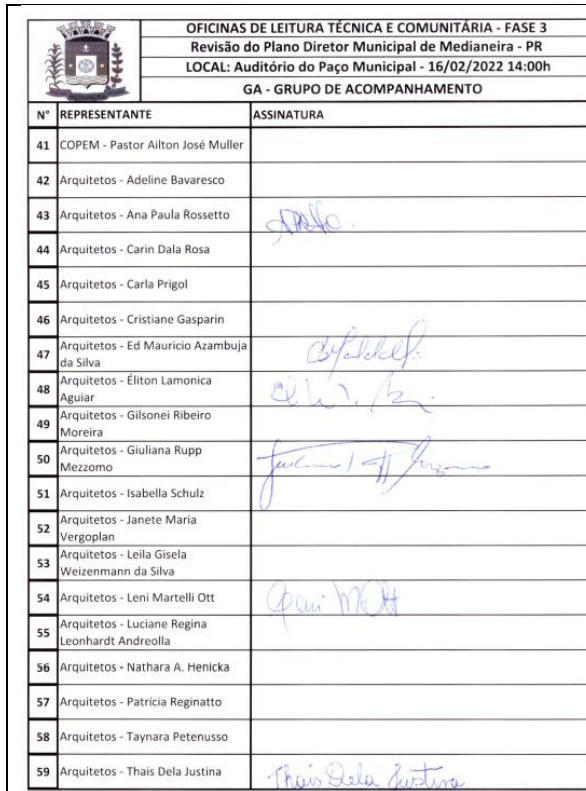 MEDIANEIRA
OFICINAS DE LEITURA TÉCNICA E COMUNITÁRIA - FASE 3
Revisão do Plano Diretor Municipal de Medianeira - PR
LOCAL: Auditório do Paço Municipal - 16/02/2022 14:00h
GA - GRUPO DE ACOMPANHAMENTO
N° REPRESENTANTE ASSINATURA
41 COPEM - Pastor Ailton José Muller
42 Arquitetos - Adeline Bavaresco
43 Arquitetos - Ana Paula Rossetto
44 Arquitetos - Carin Dala Rosa
45 Arquitetos - Carla Prigol
46 Arquitetos - Cristiane Gasparin
47 Arquitetos - Ed Mauricio Azambuja
da Silva
48 Arquitetos - Éliton Lamonica
Aguiar
49 Arquitetos - Gilsonei Ribeiro
Moreira
50 Arquitetos - Giuliana Rupp
Mezzomo
51 Arquitetos - Isabella Schulz
52 Arquitetos - Janete Maria
Vergoplan
53 Arquitetos - Leila Gisela
Weizenmann da Silva
54 Arquitetos - Leni Martelli Ott Leni M Ott
55 Arquitetos - Luciane Regina
Leonhardt Andreolla
56 Arquitetos - Nathara A. Henicka
57 Arquitetos - Patrícia Reginatto
58 Arquitetos - Taynara Petenusso
59 Arquitetos - Thais Dela Justina Thais Dela Justina